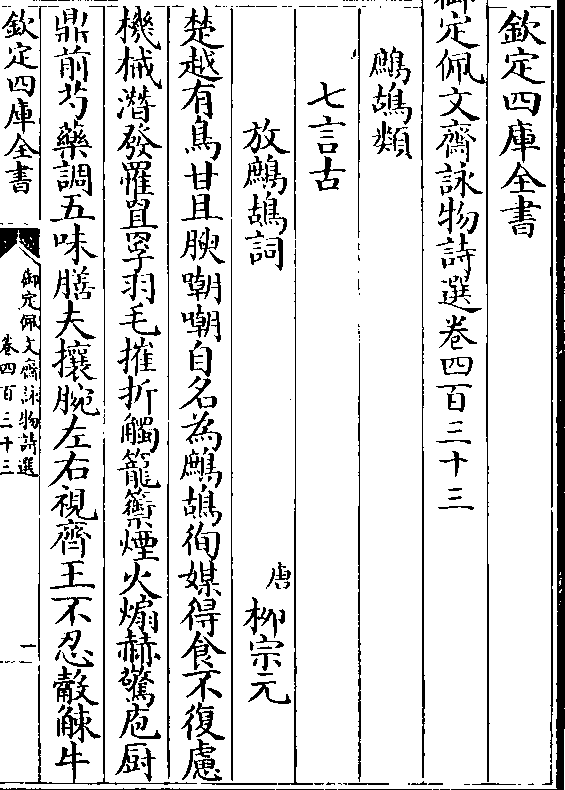 欽定四庫全書
御定佩文齋詠物詩選卷四百三十三
鷓鴣類
七言古
放鷓鴣詞 唐 柳宗元
楚越有鳥甘且腴嘲嘲自名為鷓鴣徇媒得食不復慮
機械潛發罹罝罦羽毛摧折觸籠籞煙火煽赫驚庖厨
鼎前芍藥調五味膳夫攘腕左右視齊王不忍觳觫牛
欽定四庫全書
御定佩文齋詠物詩選
卷四百三十三
一